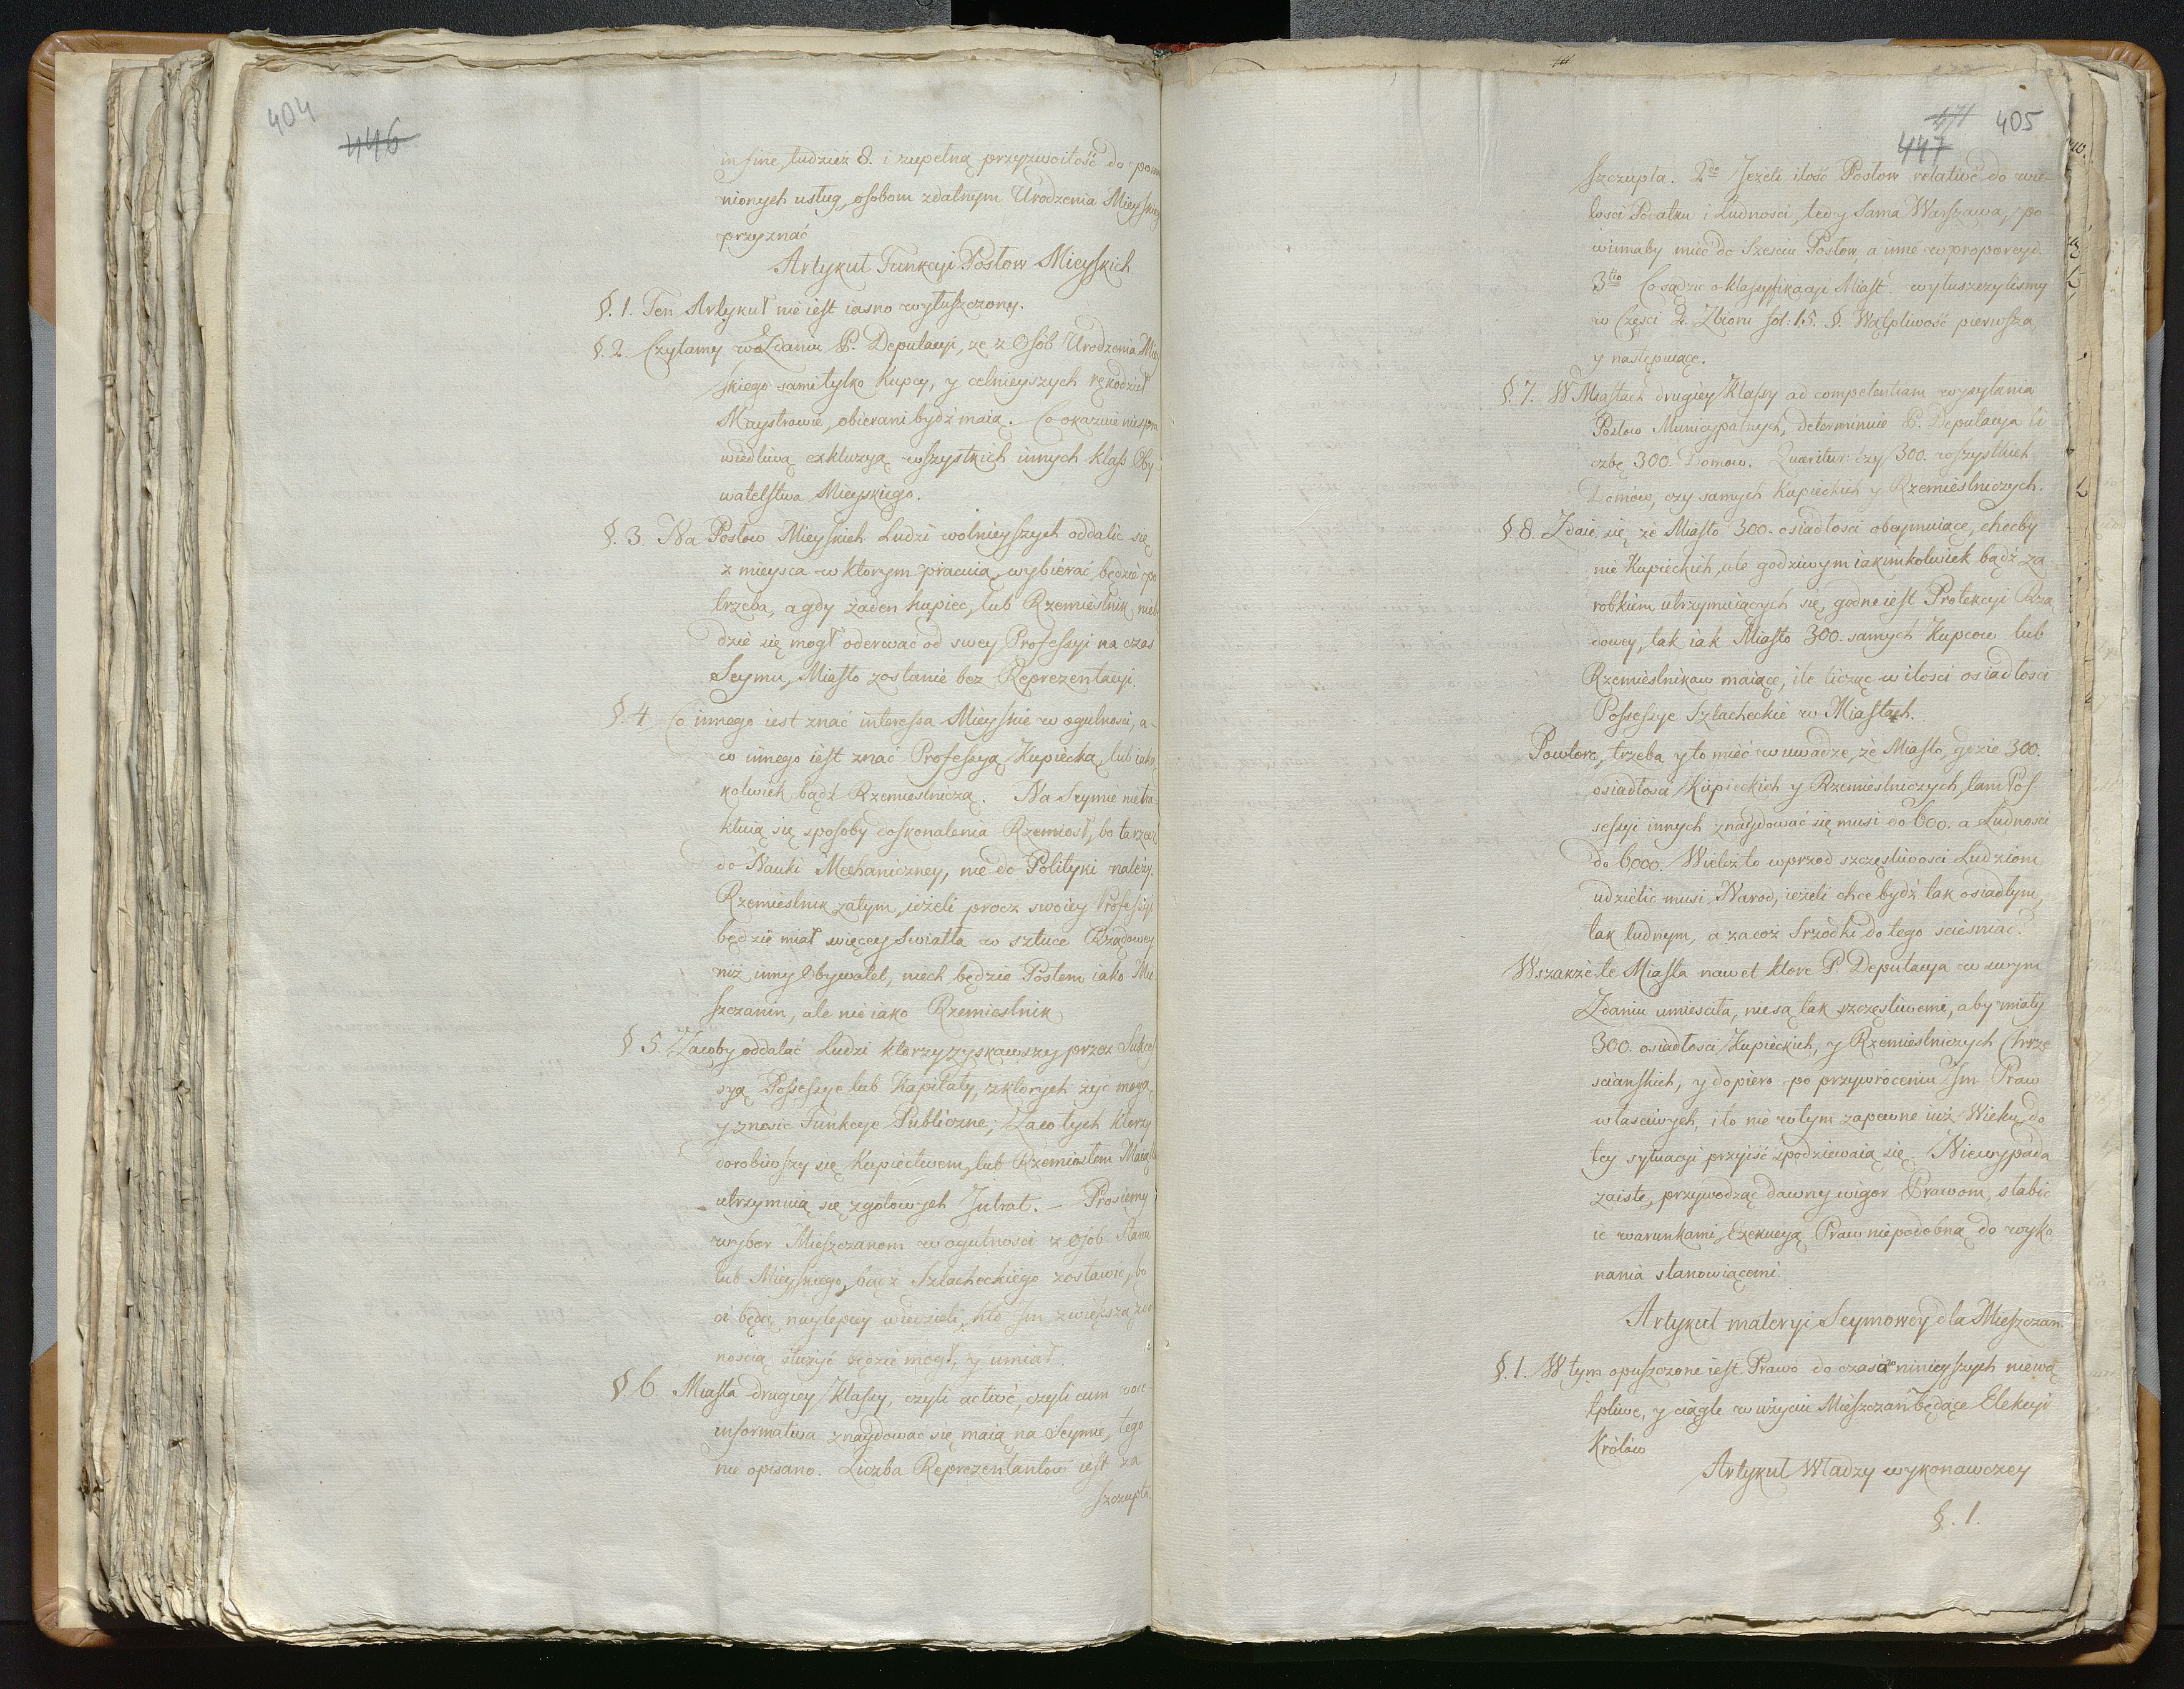 404
446
in fine, tudzież 8. i zupełną przyzwoitość do pom
nionych usług, osobom zdatnym Urodzenia Mieyskieg
przyznać
Artykuł Funkcyi Posłow Mieyskich.
§. 1. Ten Artykuł nie iest iasno wytłuszczony.
§. 2. Czytamy w Zdaniu P. Deputacyi, ze z Osób Urodzenia Miey
skiego sami tylko Kupcy, y celnieyszych rękodzieł
Maystrowie, obierani bydź maią. Co okazuie niespra
wiedliwą exkluzyą wszystkich innych klass Oby-
watelstwa Mieyskiego.
§. 3. Na Posłow Mieyskich Ludzi wolnieyszych oddalić się
z mieysca w ktorym pracuią, wybierać będzie po
trzeba, a gdy żaden kupiec, lub Rzemieslnik, nieb
dzie się mogł oderwać od swey Professyi na czas
Seymu, Miasto zostanie bez Reprezentacyi.
§. 4 Co innego iest znać interessa Mieyskie w ogulnosci, a-
co innego iest znać Professyą Kupiecką, lub iaką
kolwiek bądź Rzemieslniczą. Na Seymie nietra
ktuią się sposoby doskonalenia Rzemiosł, bo ta rzecz
do Nauki Mechaniczney, nie do Polityki należy.
Rzemieslnik zatym, ieżeli procz swoiey Professyi
będzie miał więcey Swiatła w sztuce Rządowey
niż inny Obywatel, niech będzie Posłem iako Mie
szczanin, ale nie iako Rzemieslnik
§. 5. Zacoby oddalać Ludzi ktorzy zyskawszy przez Sukce
syą Possessye lub Kapitały, z ktorych żyć mogą
y znosić Funkcye Publiczne; Zaco tych ktorzy
dorobiwszy się Kupiectwem, lub Rzemiosłem Maią
utrzymuią się z gotowych Intrat. – Prosiemy
wybor Mieszczanom w ogulnosci z Osob Stanu
lub Mieyskiego, bądź Szlacheckiego zostawić, bo
ci będą naylepiey wiedzieli, kto Im z większą zdo
noscią służyć będzie mogł, y umiał.
§. 6. Miasta drugiey Klassy, czyli activè, czyli cum voce-
informativa znaydować się maią na Seymie, tego
nie opisano. Liczba Reprezentantow iest za
szczupła.
471 405
447
szczupła. 2do Jeżeli ilość Posłow relativè do wie-
losci Podatku i Ludnosci, tedy Sama Warszawa, po
winnaby mieć do Szesciu Posłow, a inne w proporcyi.
3tio Co sądzić o klassyfikacyi Miast? wytłuszczylismy
w Częsci 2. Zbioru fol: 15. §. Wątpliwość pierwsza,
y następuiące.
§. 7. W Miastach drugiey Klassy ad competentiam wysyłania
Posłow Municypalnych, determinuie P. Deputacya li
czbę 300. Domow. Quæritur: czy 300. wszystkich
Domów, czy samych Kupieckich y Rzemieslniczych.
§. 8. Zdaie się, że Miasto 300. osiadłosci obeymuiące, choćby
nie Kupieckich, ale godziwym iakimkolwiek bądź za
robkiem utrzymuiących się, godne iest Protekcyi Rzą
dowey, tak iak Miasto 300. samych Kupcow lub
Rzemieslnikow maiące, ile licząc w ilosci osiadłosci
Possessye Szlacheckie w Miastach.
Powtore, trzeba y to mieć w uwadze, że Miasto, gdzie 300.
osiadłosci Kupieckich y Rzemieslniczych, tam Pos
sessyi innych znaydować się musi do 600. a Ludnosci
do 6000. Wieleż to wprzod szczęsliwosci Ludziom
udzielić musi Narod, ieżeli chce bydź tak osiadłym,
tak ludnym, a zacoż Srzodki do tego sciesniać?
Wszakże te Miasta nawet ktore P. Deputacya w swym
Zdaniu umiesciła, nie są tak szczęsliwemi, aby miały
300. osiadłosci Kupieckich, y Rzemieslniczych Chrze
scianskich, y dopiero po przywroceniu Im Praw
własciwych, i to nie w tym zapewne iuż Wieku, do
tey sytuacyi przyiść spodziewaią się. Niewypada
zaiste, przywodząc dawny wigor Prawom, słabić
ie warunkami, Exekucyą Praw niepodobną do wyko
nania stanowiącemi.
Artykuł materyi Seymowey dla Mieszczan.
§. 1. W tym opuszczone iest Prawo do czasow ninieyszych niewą
tpliwe, y ciągle w użyciu Mieszczan będące Elekcyi
Królów
Artykuł Władzy wykonawczey
§. 1.